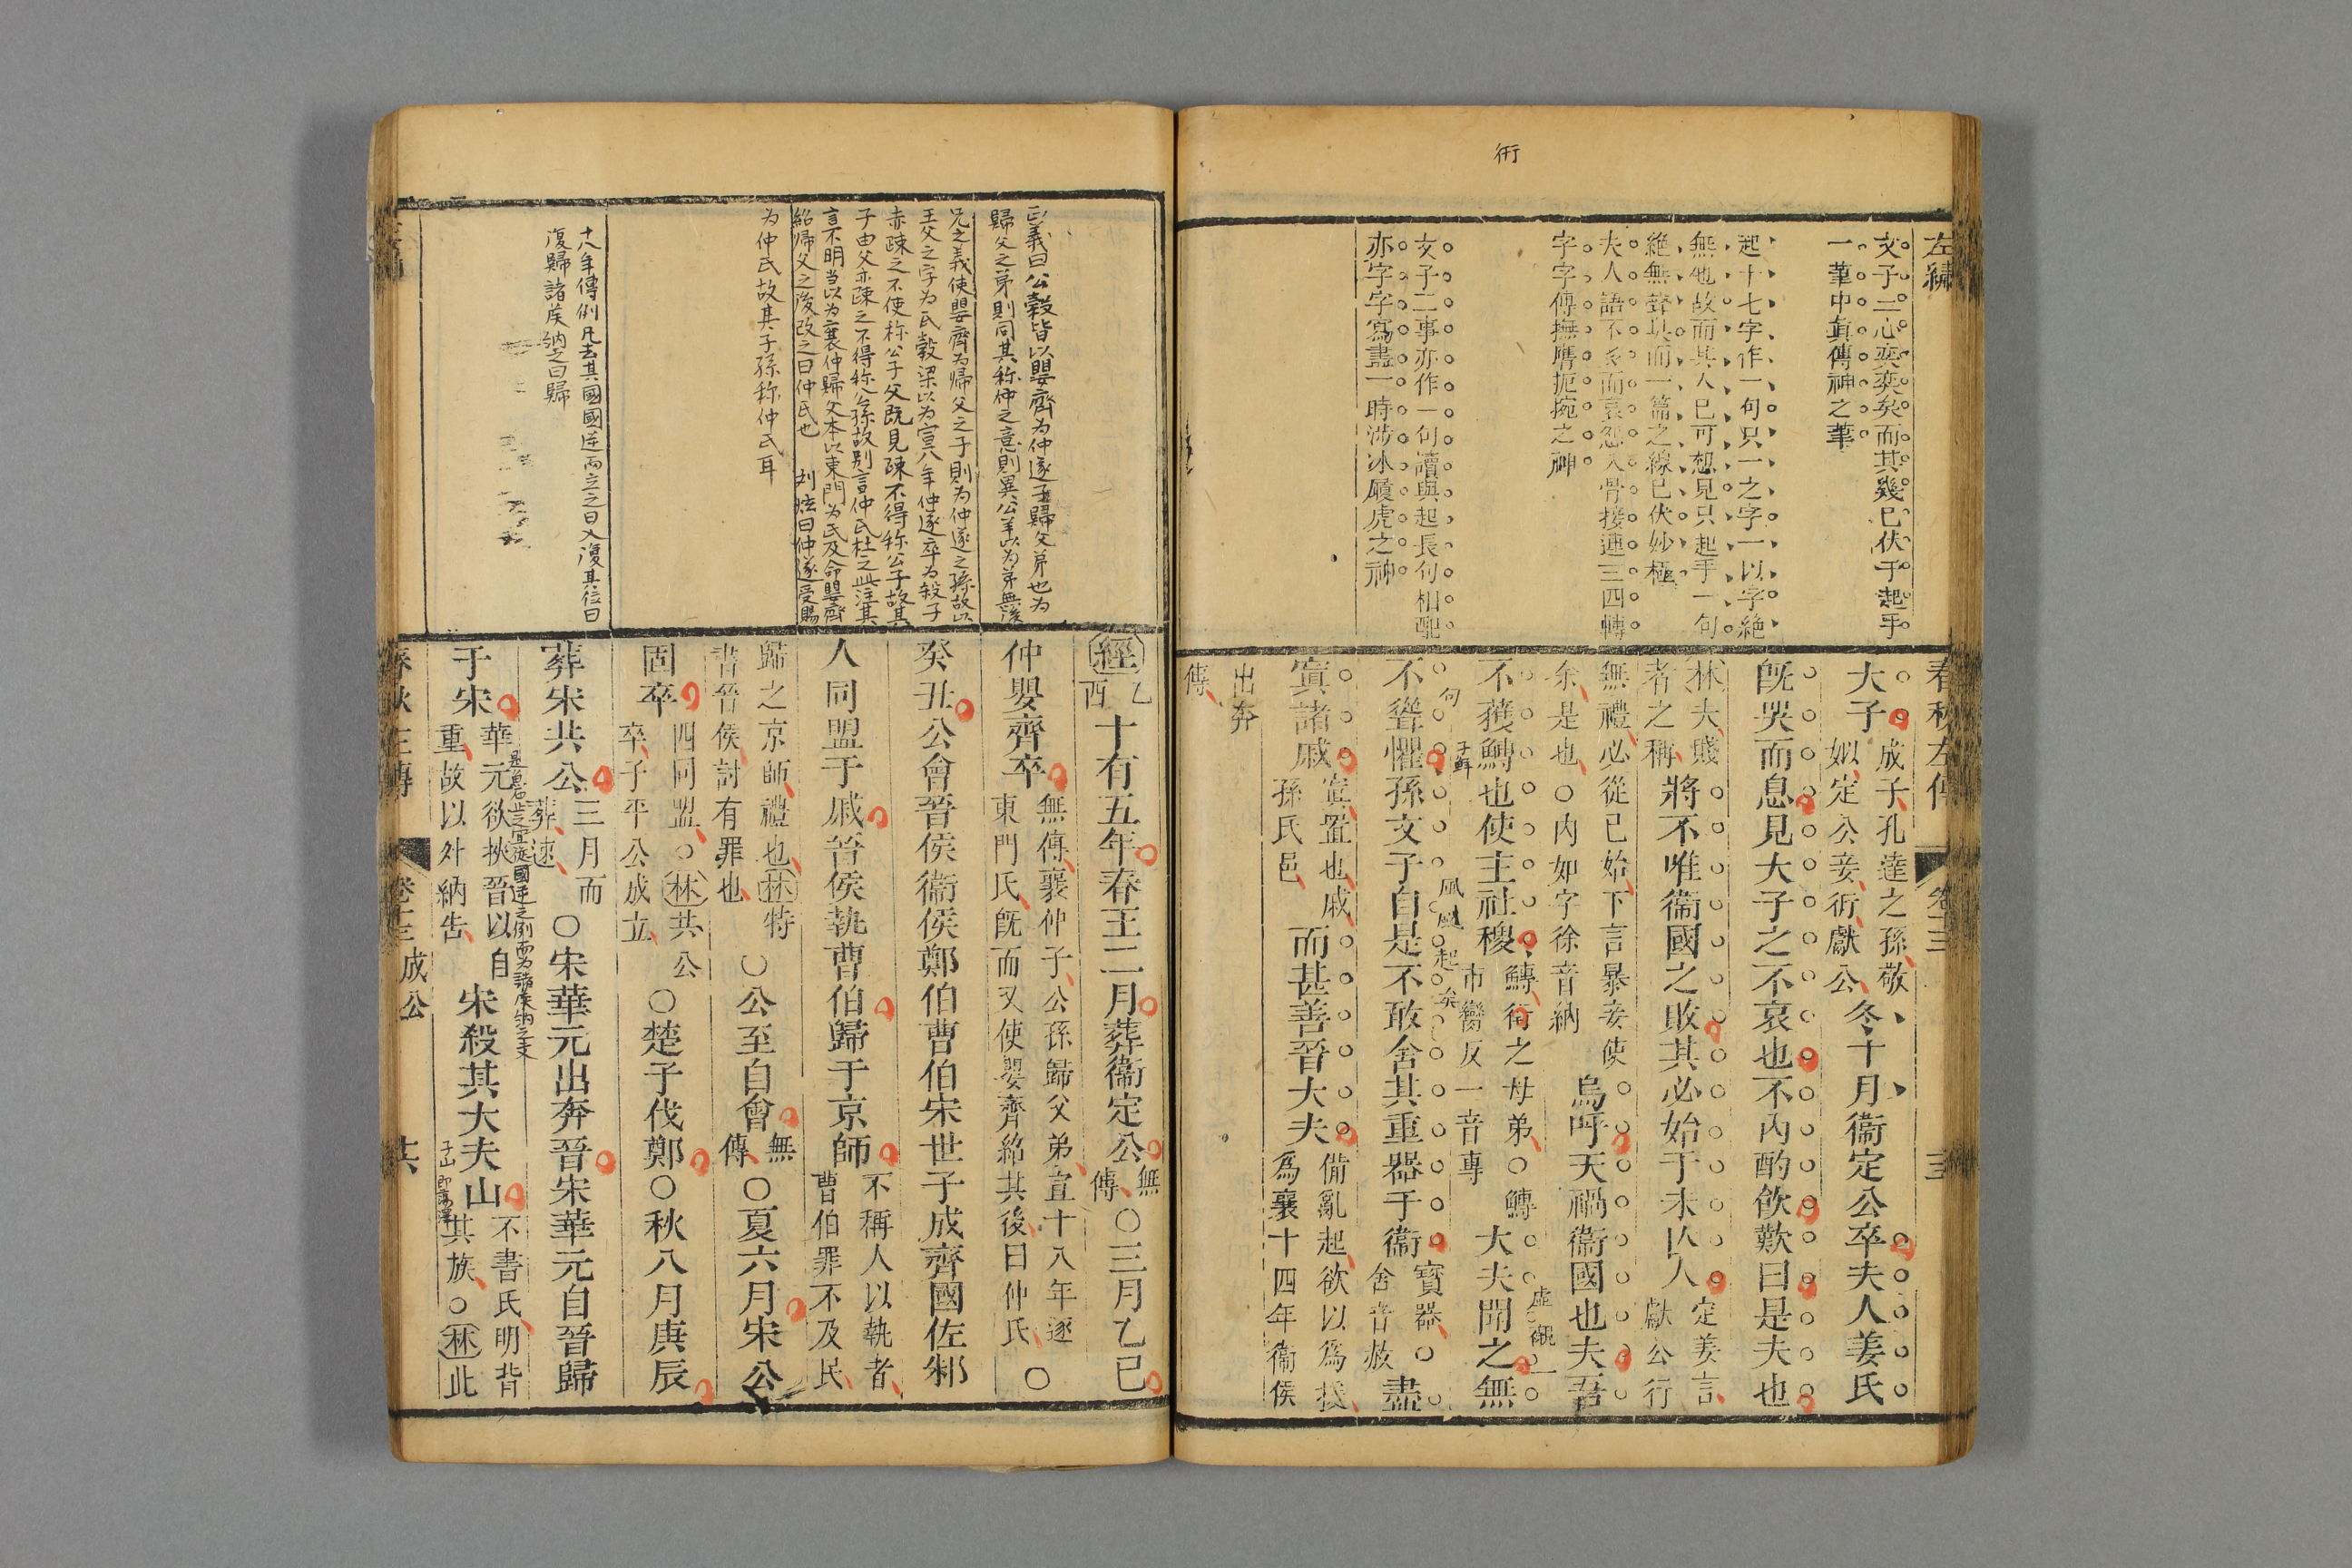 衎
左繡
文子二心奕奕矣而其幾已伏于起手
一筆中眞傳神之筆
起十七字作一句只一之字一以字絶
無也故而其人已可想見只起手一句
絶無聲其而一篇之線已伏妙極
夫人語不多而哀怨入骨接連三四轉
字字傳撫膺扼捥之神
文子二事亦作一句讀與起長句相配
亦字字寫盡一時涉冰履虎之神
春秋左傳 卷十三
大子成子孔達之孫敬
姒定公妾衎獻公冬十月衞定公卒夫人姜氏
旣哭而息見大子之不哀也不內酌飲歎曰是夫也
林夫賤
者之稱將不唯衞國之敗其必始于未亾人定姜言
獻公行
無禮必從已始下言暴妾使
余是也○內如字徐音納烏呼天禍衞國也夫吾
不獲鱄也使主社稷鱄衎之母弟○鱄
市臠反一音專大夫聞之無
子鮮
不聳懼孫文子自是不敢舍其重器于衞寶器○
舍音赦盡
句
風颿起矣
虛襯一
寘諸戚寘置也戚
孫氏邑而甚善晉大夫備亂起欲以爲援
爲襄十四年衞侯
出奔
傳
正義曰公穀皆以嬰齊为仲遂子歸父弟也为
歸父之弟則同其称仲之意則異公羊以为弟無後
兄之義使嬰齊为帰父之子則为仲遂之孫故以
王父之字为氏穀梁以为宣八年仲遂卒为殺子
赤疎之不使称公子父既見疎不得称公子故其
子由父亦疎之不得称公孫故别言仲氏杜之此注其
言不明当以为襄仲歸父本以東門为氏及命嬰齊
紹帰父之後改之曰仲氏也 刘炫曰仲遂受賜
为仲氏故其子孫称仲氏耳
十八年傳例凡去其國國逆而立之曰入復其位曰
復歸諸侯納之曰歸
經乙
酉十有五年春王二月葬衞定公無
傳○三月乙巳
仲嬰齊卒無傳襄仲子公孫歸父弟宣十八年逐
東門氏旣而又使嬰齊紹其後曰仲氏○
癸丑公會晉侯衞侯鄭伯曹伯宋世子成齊國佐邾
人同盟于戚晉侯執曹伯歸于京師不稱人以執者
曹伯罪不及民
歸之京師禮也林特
書晉侯討有罪也○公至自會無
傳○夏六月宋公
固卒四同盟○林共公
卒子平公成立○楚子伐鄭○秋八月庚辰
葬宋共公三月而
葬速○宋華元出奔晉宋華元自晉歸
是魚石止之宜從國逆之例而为諸侯納之文
于宋華元欲挾晉以自
重故以外納告宋殺其大夫山不書氏明背
其族○林此
子山即蕩澤
春秋左傳 卷十三 成公 共